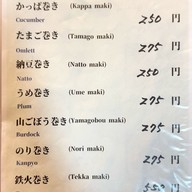 かっぱ巻き (Kappa maki) 250 円
Cucumber
たまご巻き (Tamago maki) 275 円
Omlett
納豆巻き (Natto maki) 250 円
Natto
うめ巻き (Ume maki) 275 円
Plum
山ごぼう巻き (Yamagobou maki) 275 円
Burdock
のり巻き (Nori maki) 275 円
Kanpyo
鉄火巻き (Tekka maki) 550 円